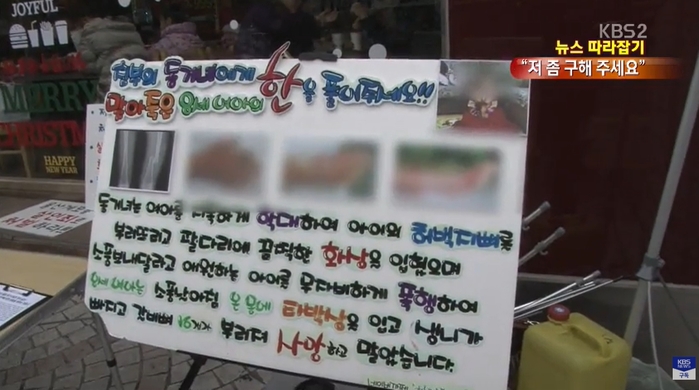 JOYFUL
KBS2
뉴스 따라잡기
“저 좀 구해 주세요”
MERRY
CHRISTMAS
HAPPY
NEW YEAR
친부의 동거녀에게 한을 풀어주세요!!
맞아죽은 8세 여아의
동거녀는 여아를 학대하여 아이의 허벅지뼈를
부러뜨리고 팔다리에 끔찍한 화상을 입혔으며
소풍보내달라고 애원하는 아이를 무자비하게 폭행하여
8세 여아는 소풍날아침 온 몸에 타박상을 입고 생니가
빠지고 갈비뼈 16개가 부러져 사망하고 말았습니다.
KBS
NEWS
구독